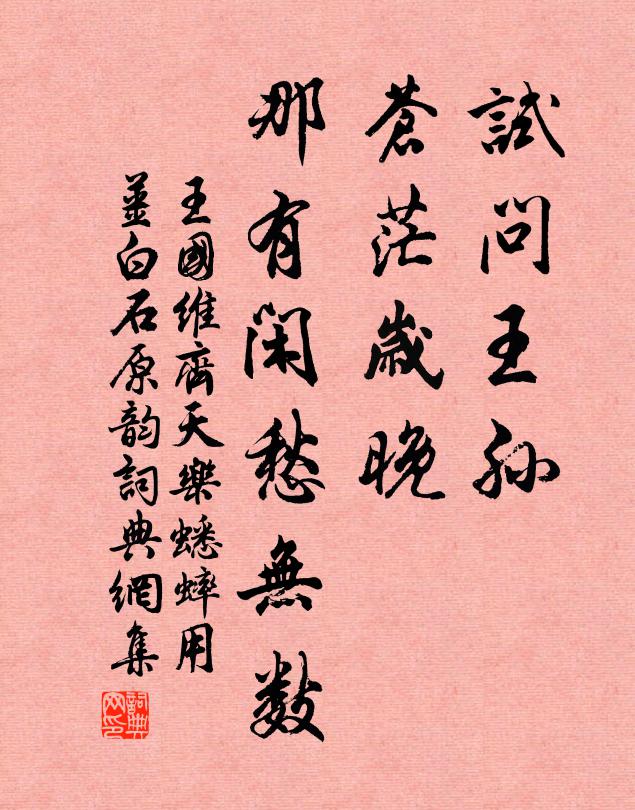 試問王孫
蒼茫歲晚
那有閑愁無數
王國維齊天樂蟋蟀用
姜白石原韵詞典網集
詞典网印